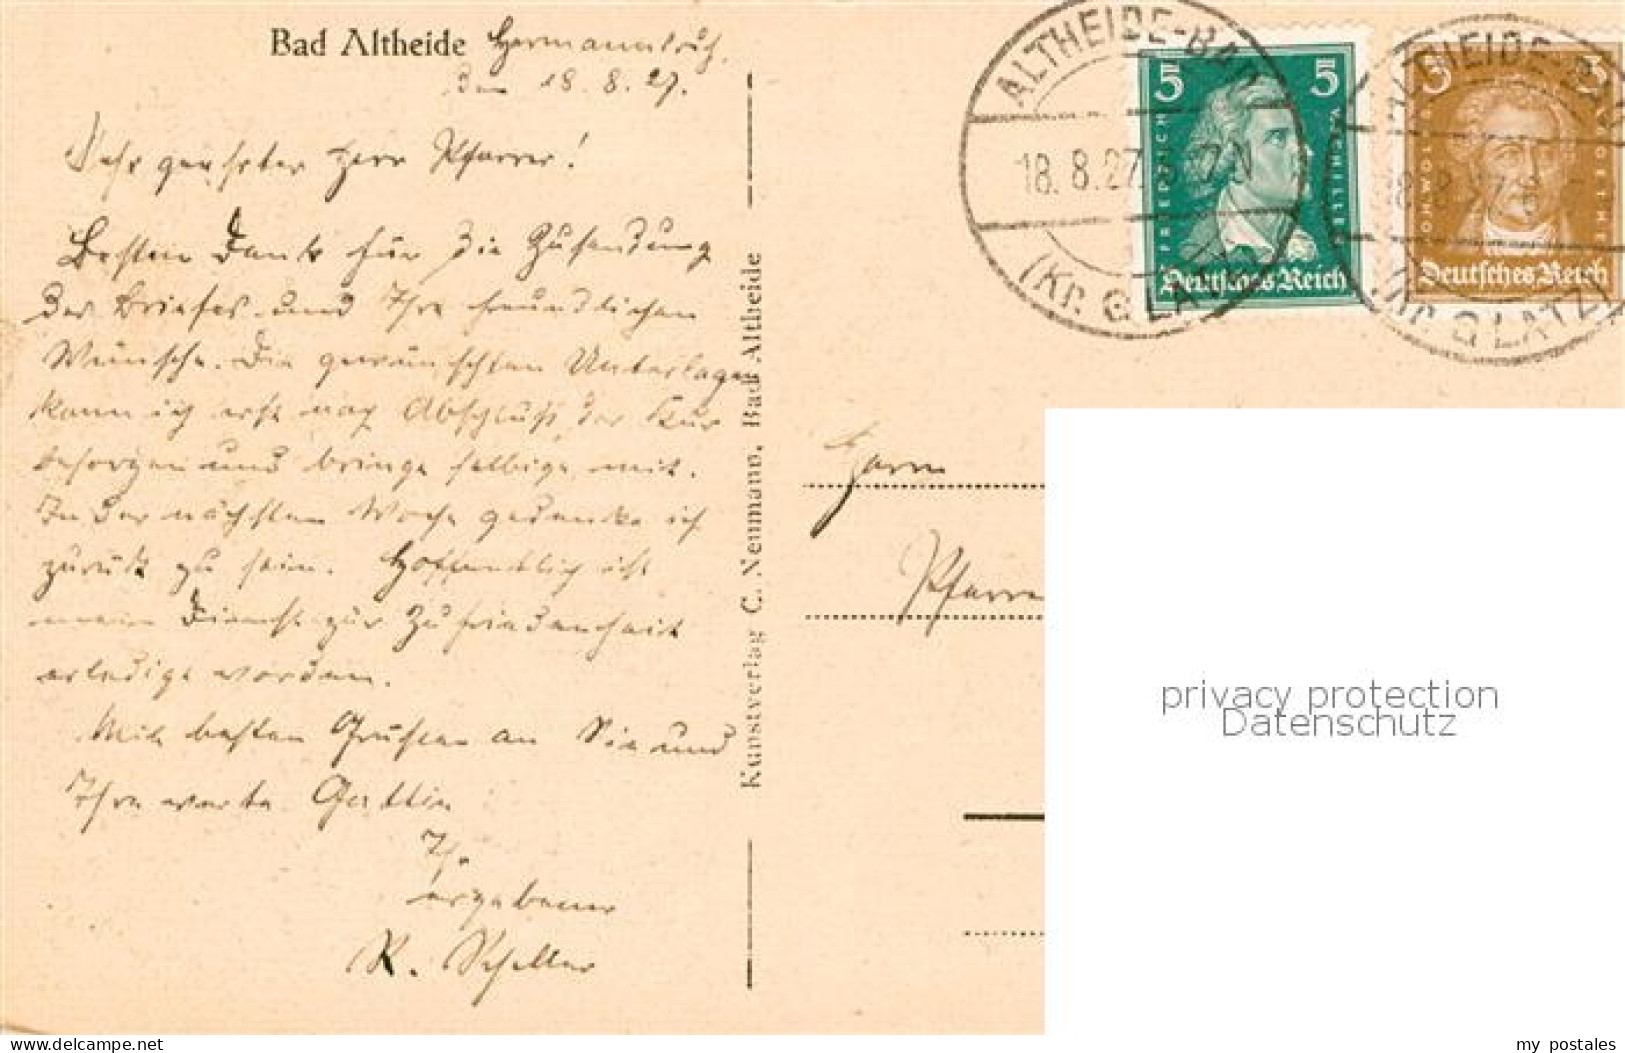 Bad Altheide Hermannsruh,
den 18. 8. 27.
Sehr geehrter Herr Pfarrer!
Besten Dank für die Zusendung
des Briefes und Ihre freundlichen
Wünsche. Die gewünschten Unterlagen
kann ich erst nach Abschluß der Kur
besorgen und bringe selbige mit.
In der nächsten Woche gedenke ich
zurück zu sein. Hoffentlich ist
mein Dienst zur Zufriedenheit
erledigt worden.
Mit besten Grüßen an Sie und
Ihre werte Gattin
Ihr
ergebener
K. Scheller
Kunstverlag C. Neumann, Bad Altheide
ALTHEIDE-BAD
18.8.27. 7N
(Kr. GLATZ)
5 5
FRIEDRICH V. SCHILLER
Deutsches Reich
ALTHEIDE-BAD
(Kr. GLATZ)
3 3
Deutsches Reich
Herrn
Pfarrer
privacy protection
Datenschutz
www.delcampe.net
my_postales